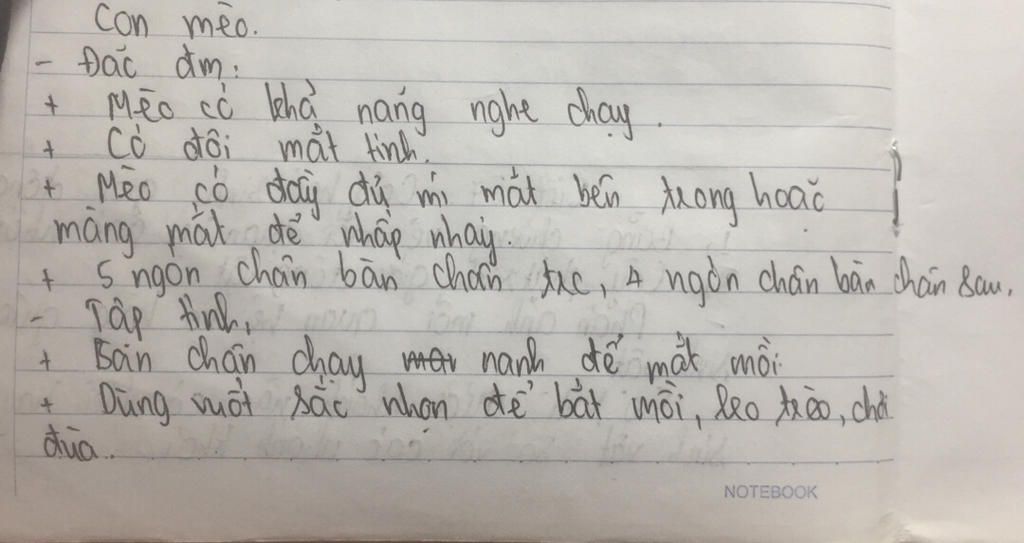 Con mèo.
- Đăc đm:
+ Mèo có khả năng nghe chạy.
+ Có đôi mắt tinh.
+ Mèo có đầy đủ mí mắt bên trong hoặc
màng mắt để nhấp nháy.
+ 5 ngón chân bàn chân trc, 4 ngón chân bàn chân sau.
- Tập tính,
+ Bàn chân chạy nanh để mắt mồi.
+ Dùng vuốt sắc nhọn để bắt mồi, leo trèo, chơi
đùa.
NOTEBOOK